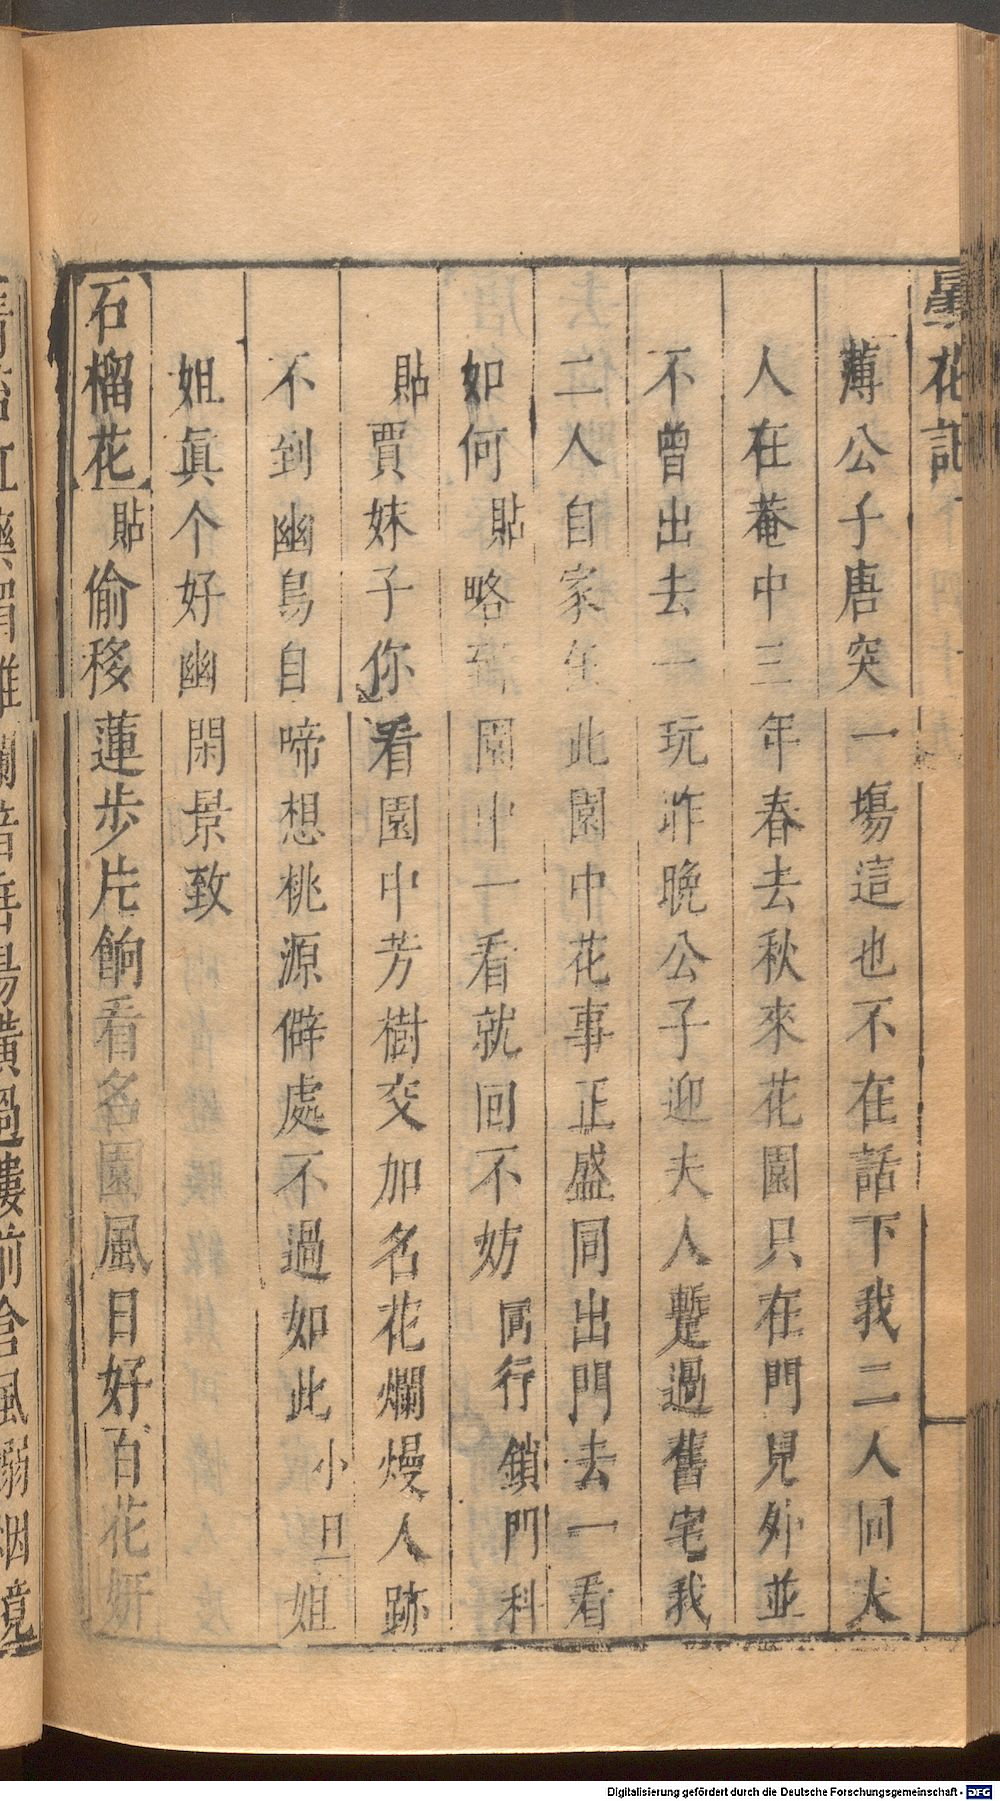 曇花記
薄公子唐突一塲這也不在話下我二人同夫
人在菴中三年春去秋來花園只在門見外並
不曾出去一玩昨晚公子迎夫人蹔過舊宅我
二人自家在此園中花事正盛同出門去一看
如何貼略到園中一看就回不妨同行鎖門科
貼賈妹子你看園中芳樹交加名花爛熳人跡
不到幽鳥自啼想桃源僻處不過如此小旦姐
姐眞个好幽閑景致
石榴花貼偷移蓮步片餉看名園風日好百花妍
Digitalisierung gefördert durch die Deutsche Forschungsgemeinschaft - DFG